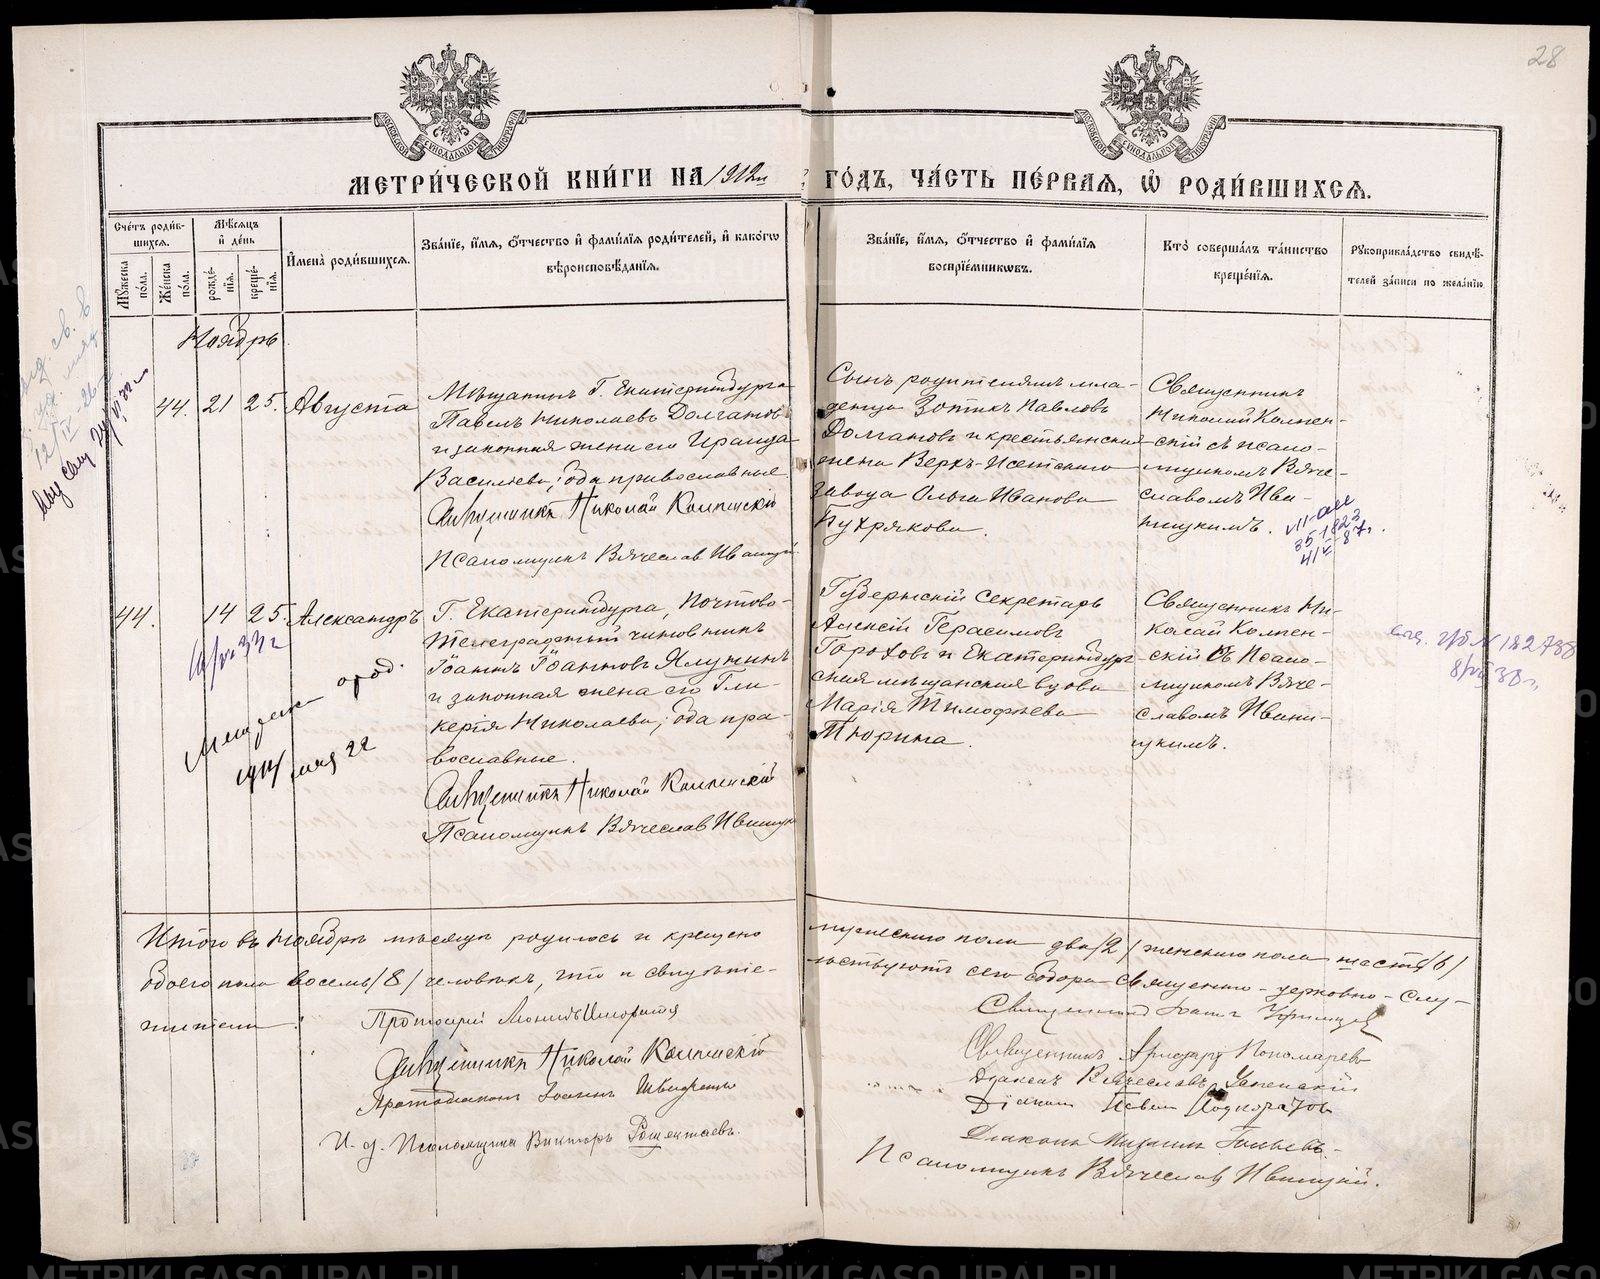 28
МЕТРИ́ЧЕСКОЙ КНИ́ГИ НА 1912й ГО́ДЪ, ЧА́СТЬ ПЕ́РВАЯ, Ѽ РОДИ́ВШИХСЯ.
Сче́тъ роди́в-
шихся.
Мѣ́сяцъ
и́ де́нь
Мꙋ́жеска
по́ла.
Же́нска
по́ла.
рожде́-
нія.
креще́-
нія.
И́мена̀ роди́вшихся.
Зва́ніе, и́мя, ѻ́тчество и́ фами́лія роди́телей, и́ како́гѡ
вѣроисповѣ́данія.
Зва́ніе, и́мя, ѻ́тчество и́ фами́лія
воспріе́мниковъ.
Кто̀ соверша́лъ та́инство
креще́нія.
Рꙋкоприкла́дство свидѣ́-
телей за́писи по жела́нію
Ноябрь
44. 21 25. Августа
Мѣщанинъ Г. Екатеринбурга
Павелъ Николаевъ Долгановъ
и законная жена его Ираида
Васильева, оба православные
Священникъ НиколайКолпенскій
Псаломщикъ Вячеславъ Ивицкій
Сынъ родителямъ мла-
денца Зотикъ Павловъ
Долгановъ и крестьянская
жена Верхъ-Исетскаго
завода Ольга Иванова
Бухрякова.
Священникъ
Николай Колпен-
скій съ псало-
мщикомъ Вяче-
славомъ Иви-
цкимъ.
44. 14 25. Александръ
Г. Екатеринбурга, Почтово-
Телеграфный чиновникъ
Іоаннъ Іоанновъ Ялунинъ
и законная жена его Гли-
керія Николаева, оба пра-
вославные.
Священникъ Николай Колпенскій
Псаломщикъ Вячеславъ Ивицкій
Губернскій Секретарь
Алексій Герасимовъ
Гороховъ и Екатеринбург-
ская мѣщанская вдова
Марія Тимофѣева
Тюрина.
Священникъ Ни-
колай Колпен-
скій съ Псало-
мщикомъ Вяче-
славомъ Ивиц-
цкимъ.
1914 мая 22
Итого въ Ноябрѣ мѣсяцѣ родилось и крещено мужескаго пола два /2/ женскаго пола шесть /6/
обоего пола восемь /8/ человѣкъ, что и свидѣте-льствуютъ сего собора Священно-церковно-слу-
жители:
Протоіерей
Священникъ Николай Колпенскій
Протодіаконъ Іоаннъ
И. д. Псаломщика Викторъ
Священникъ Іоаннъ
Священникъ Пономаревъ
Діаконъ Вячеславъ Успенскій
Діаконъ
Діаконъ Михаилъ
Псаломщикъ Вячеславъ Ивицкій.
METRIKI.GASO-URAL.RU